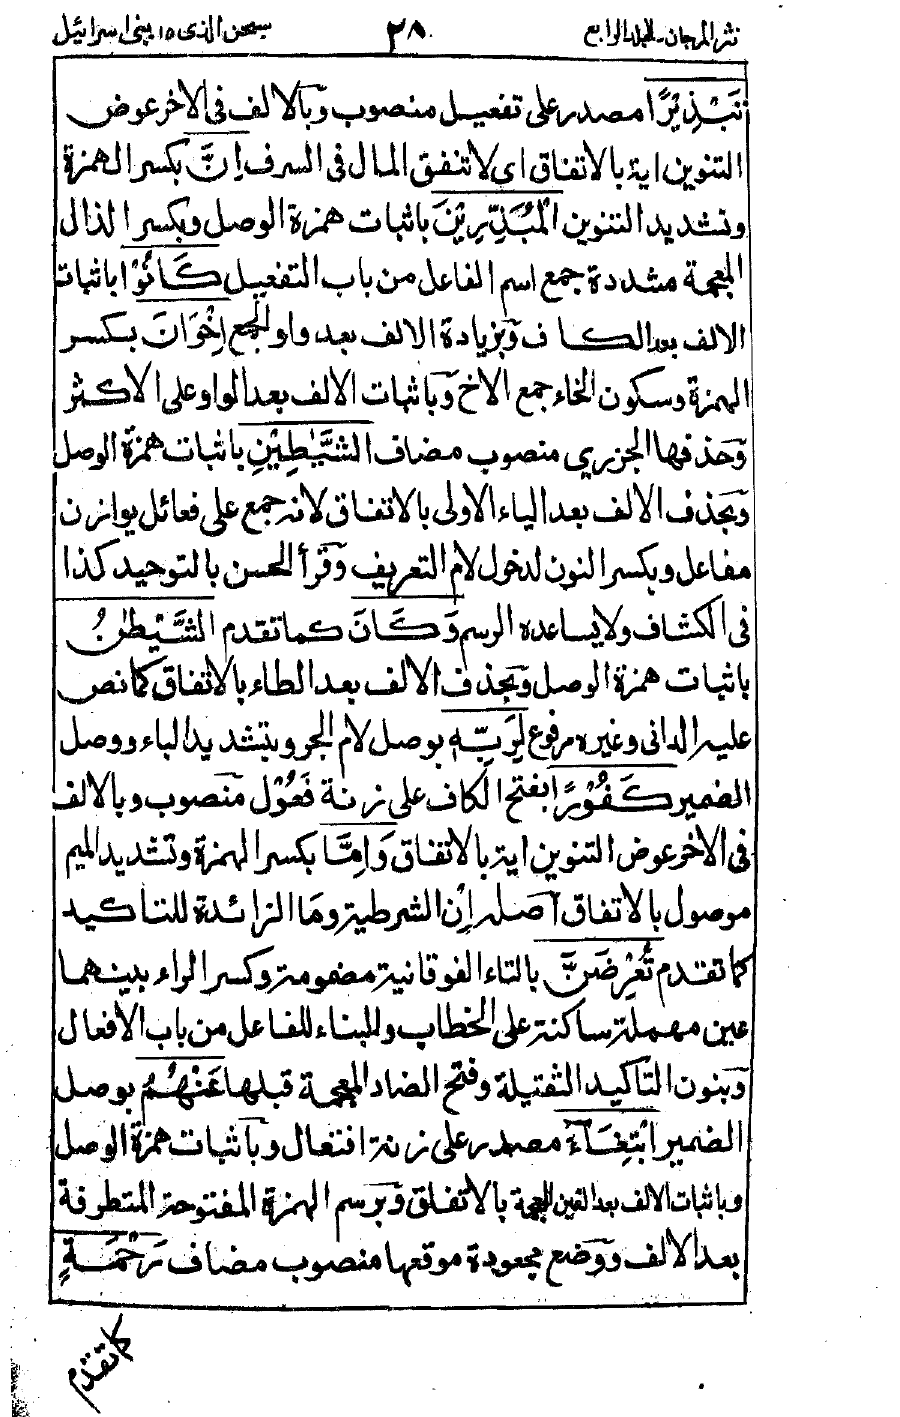 نثر المرجان - المجلد الرابع ٢٨ سبحن الذى ١٥ بنى اسرائيل
تَبْذِيْرًا مصدر على تفعيل منصوب وبالالف فى الاخر عوض
التنوين اية بالاتفاق اى لا تنفق المال فى السرف اِنَّ بكسر الهمزة
وتشديد التنوين الْمُبَذِّرِيْنَ باثبات همزة الوصل وبكسر الذال
المعجمة مشددة جمع اسم الفاعل من باب التفعيل كَانُوْا باثبات
الالف بعد الكاف وبزيادة الالف بعد واو الجمع اِخْوَانَ بكسر
الهمزة وسكون الخاء جمع الاخ وباثبات الالف بعد الواو على الاكثر
وحذفها الجزرى منصوب مضاف الشَّيٰطِيْنِ باثبات همزة الوصل
وبحذف الالف بعد الياء الاولى بالاتفاق لانه جمع على فعائل يوازن
مفاعل وبكسر النون لدخول لام التعريف وقرأ الحسن بالتوحيد كذا
فى الكشاف ولا يساعده الرسم وَكَانَ كما تقدم الشَّيْطٰنُ
باثبات همزة الوصل وبحذف الالف بعد الطاء بالاتفاق كما نص
عليه الدانى وغيره مرفوع لِرَبِّهٖ بوصل لام الجر وبتشديد الباء ووصل
الضمير كَفُوْرًا بفتح الكاف على زنة فَعُوْل منصوب وبالالف
فى الاخر عوض التنوين اية بالاتفاق وَاِمَّا بكسر الهمزة وتشديد الميم
موصول بالاتفاق اصله اِنْ الشرطية وما الزائدة للتاكيد
كما تقدم تُعْرِضَنَّ بالتاء الفوقانية مضمومة وكسر الراء بينهما
عين مهملة ساكنة على الخطاب والبناء للفاعل من باب الافعال
وبنون التاكيد الثقيلة وفتح الضاد المعجمة قبلها عَنْهُمُ بوصل
الضمير ابْتِغَآءَ مصدر على زنة افتعال وباثبات همزة الوصل
وباثبات الالف بعد الغين المعجمة بالاتفاق وبرسم الهمزة المفتوحة المتطرفة
بعد الالف ووضع مجعودة موقعها منصوب مضاف رَحْمَةٍ
كما تقدم